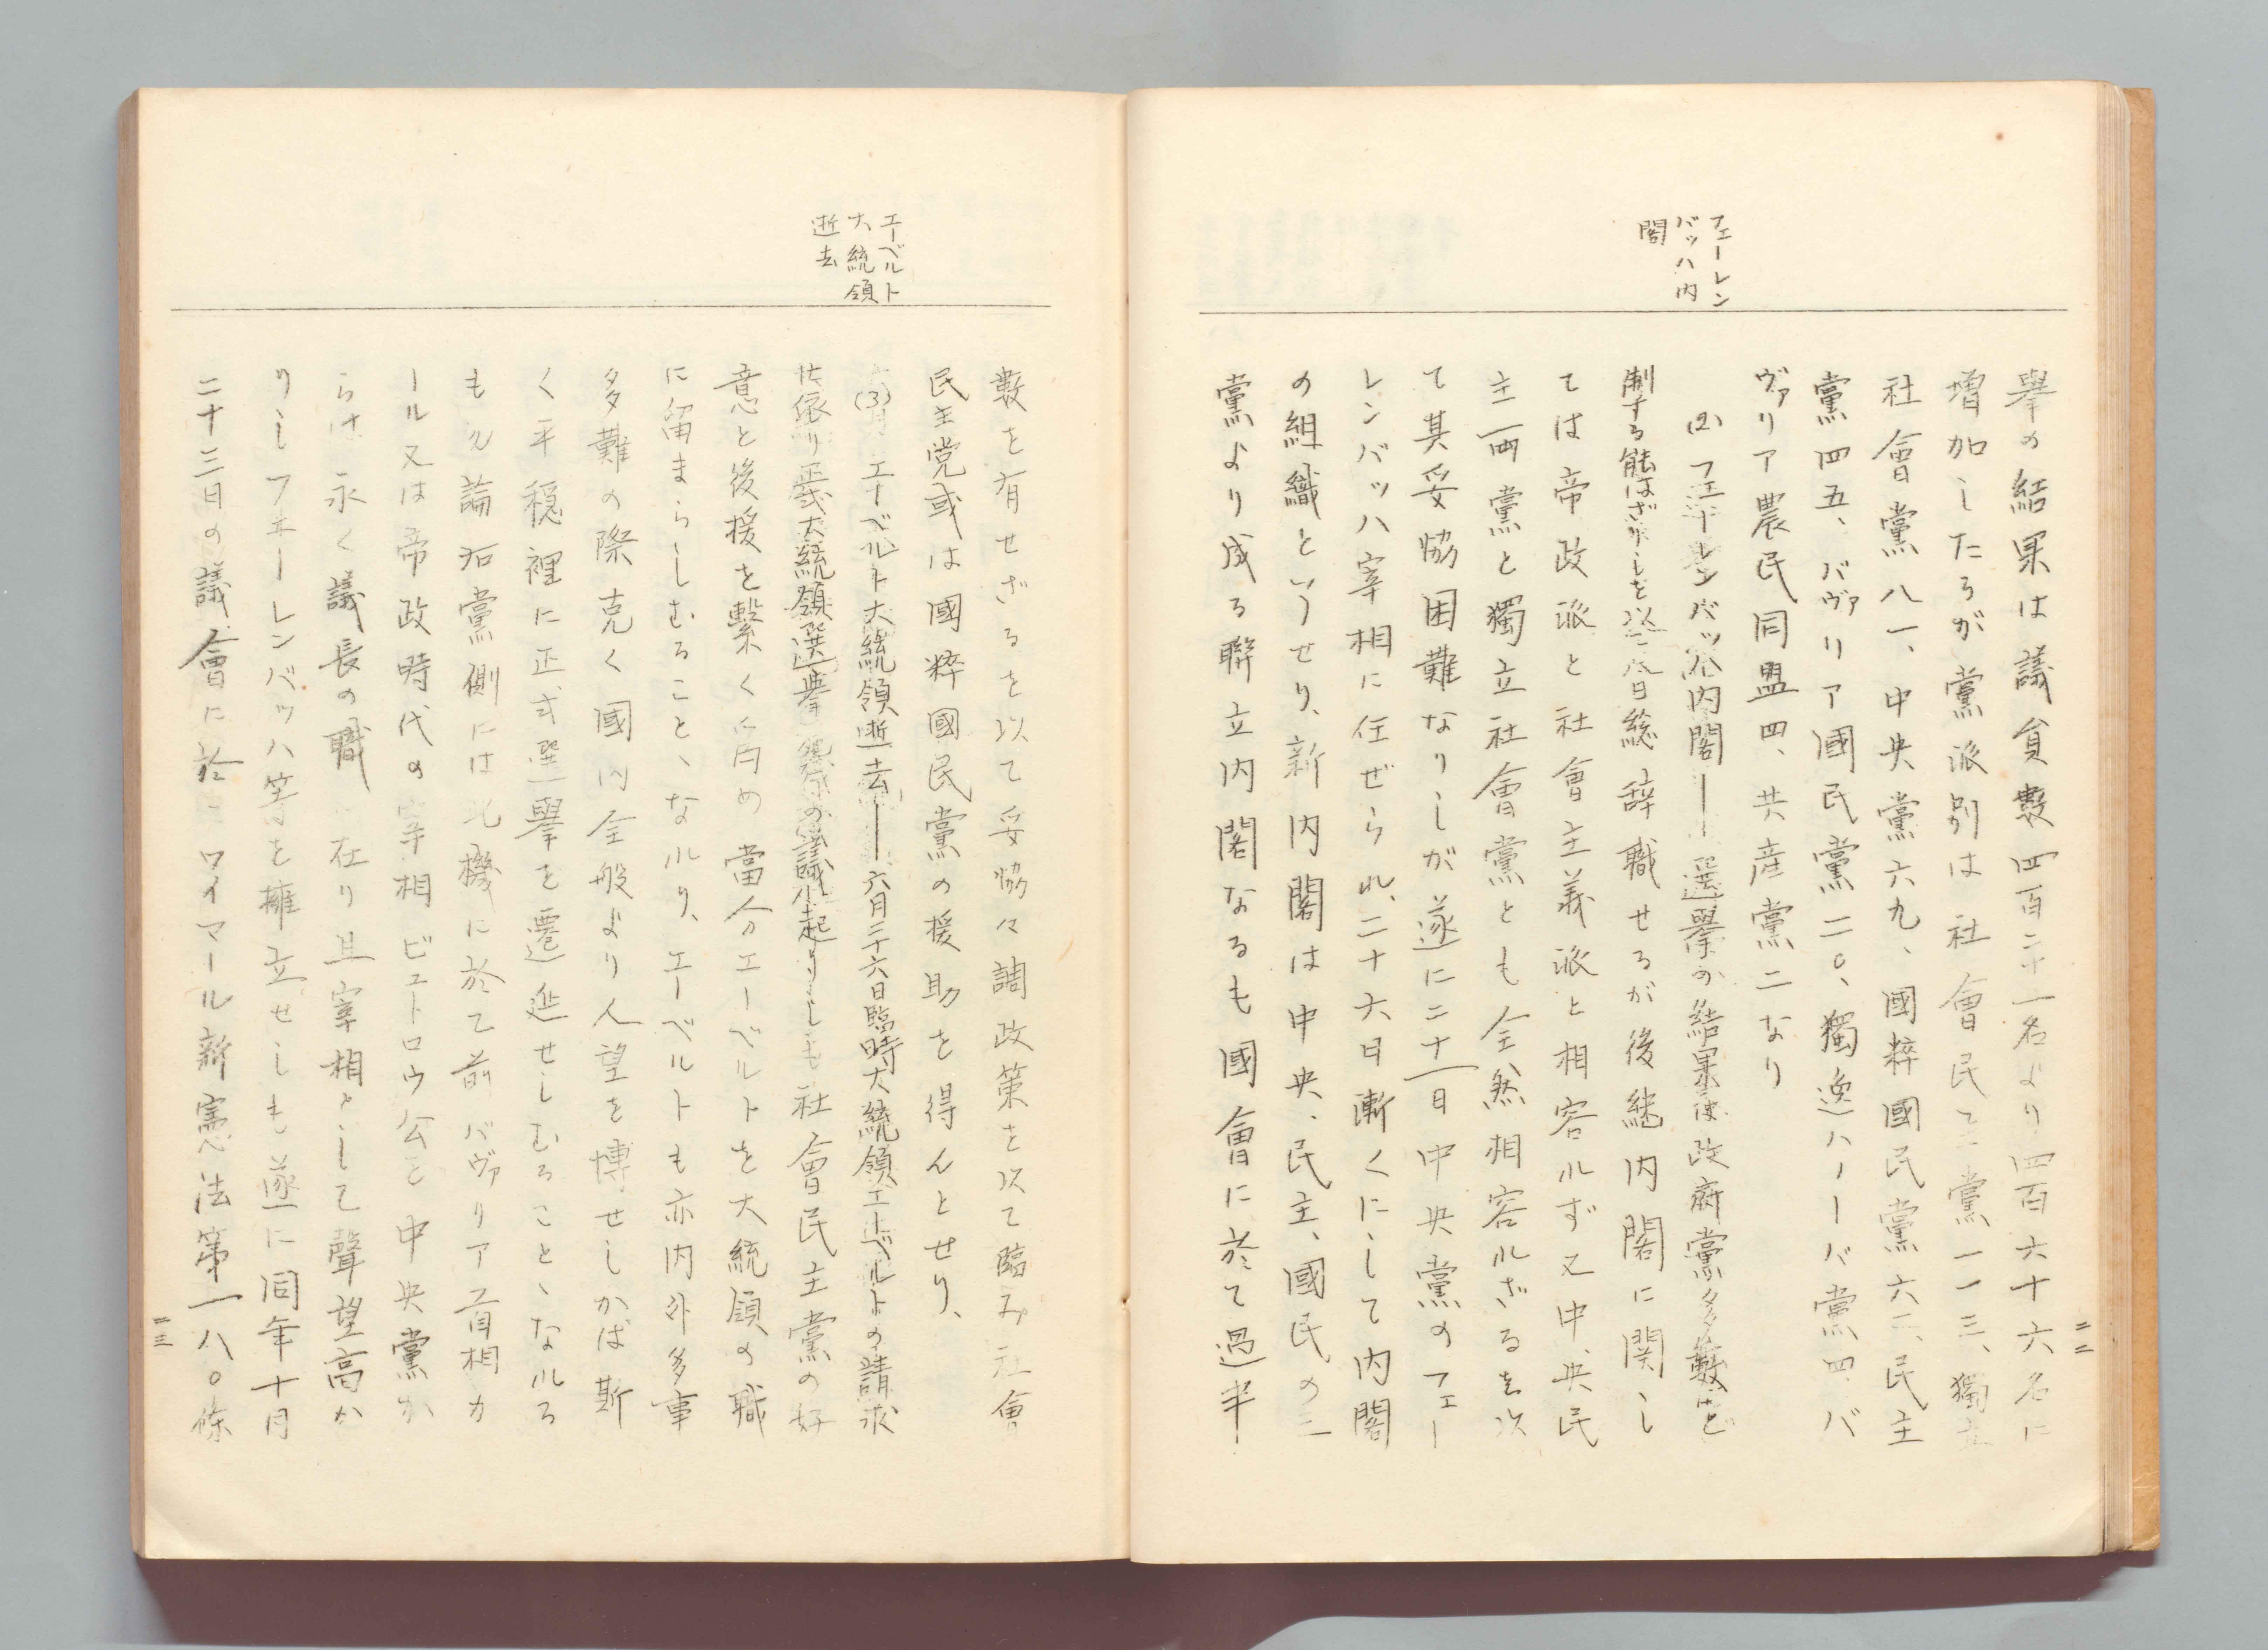 二二
フェーレン
バッハ內
閣
擧の結果は議員數四百二十一名より四百六十六名に
增加したるが黨派別は社會民主黨一一三、獨立
社會黨八一、中央黨六九、國粹國民黨六二、民主
黨四五、バヴァリア國民黨二〇、獨逸ハノーバ黨四、バ
ヴァリア農民同盟四、共産黨二なり
(2) フェーレンバッハ内閣——選擧の結果は政府黨多數を
制する能はざりしを以て八日総辞職せるが後継内閣に関し
ては帝政派と社會主義派と相容ルず又中央民
主両黨と獨立社會黨とも全然相容ルざるを以
て其妥協困難なりしが遂に二十一日中央黨のフェー
レンバッハ宰相に任ぜられ、二十六日漸くにして内閣
の組織というせり、新内閣は中央、民主、國民の三
黨より成る聯立内閣なるも國會に於て過半
エーベルト
大統領
逝去
數を有せざるを以て妥協々調政策を以て臨み社會
民主党或は國粹國民黨の援助を得んとせり、
(3) エーベルト大統領逝去——六月二十六日臨時大統領エーベルトの請求
に依り正式大統領選擧の議起りしも社會民主黨の好
意と後援を繫く為め當分エーベルトを大統領の職
に留まらしむること、なルり、エーベルトも亦内外多事
多難の際克く國内全般より人望を博せしかば斯
く平穏裡に正式選擧を遷延せしむること、なルる
も勿論右黨側には此機に於て前バヴァリア首相カ
ール又は帝政時代の宰相ビュトロウ公を中央黨か
らは永く議長の職に在り且宰相として聲望高か
りしフェーレンバッハ等を擁立せしも遂に同年十月
二十三日の議會に於てワイマール新憲法第一八〇條
二三